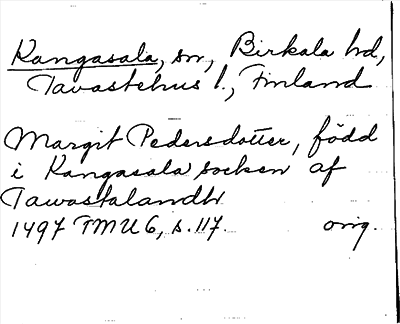 Kangasala, sn, Birkala hd,
Tavastehus l., Finland
Margit Pedersdotter, född
i Kangasala socken af
Tawastalandh
1497 TMU 6, s. 117. orig.